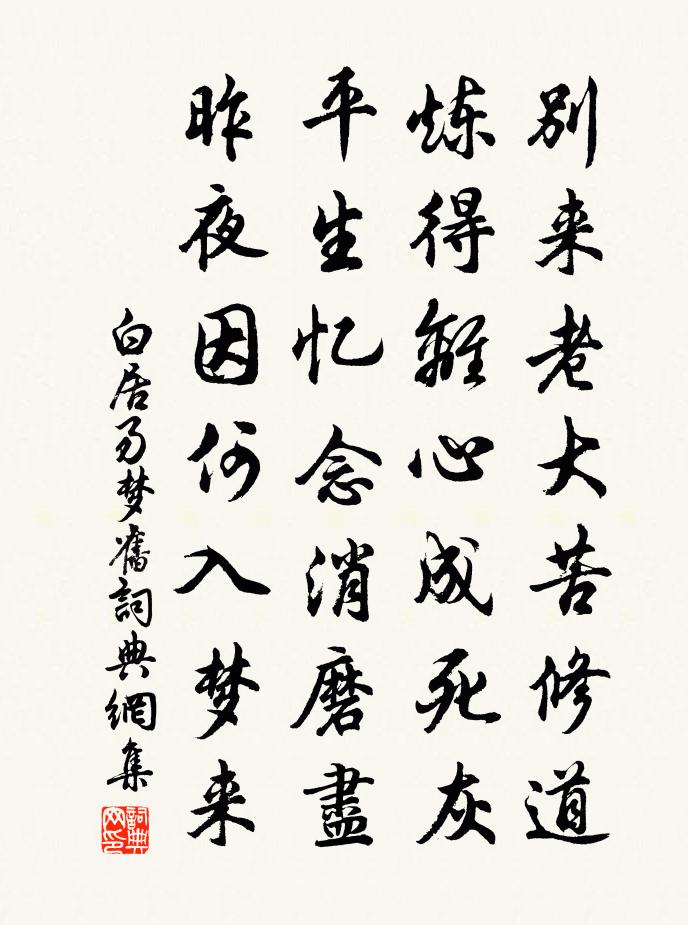 别来老大苦修道
炼得離心成死灰
平生忆念消磨盡
昨夜因何入梦来
白居易梦舊詞典網集
詞典网印